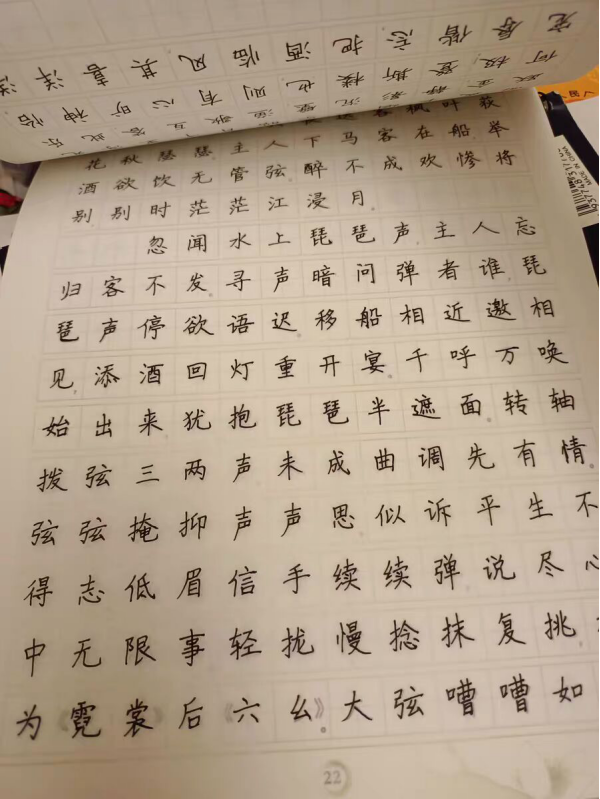 何极登斯楼也则有心旷神怡
宠辱偕忘把酒临风其喜洋洋
客枫叶荻
花秋瑟瑟主人下马客在船举
酒欲饮无管弦醉不成欢惨将
别别时茫茫江浸月
忽闻水上琵琶声主人忘
归客不发寻声暗问弹者谁琵
琶声停欲语迟移船相近邀相
见添酒回灯重开宴千呼万唤
始出来犹抱琵琶半遮面转轴
拨弦三两声未成曲调先有情
弦弦掩抑声声思似诉平生不
得志低眉信手续续弹说尽心
中无限事轻拢慢捻抹复挑
为《霓裳》后《六幺》大弦嘈嘈如
22